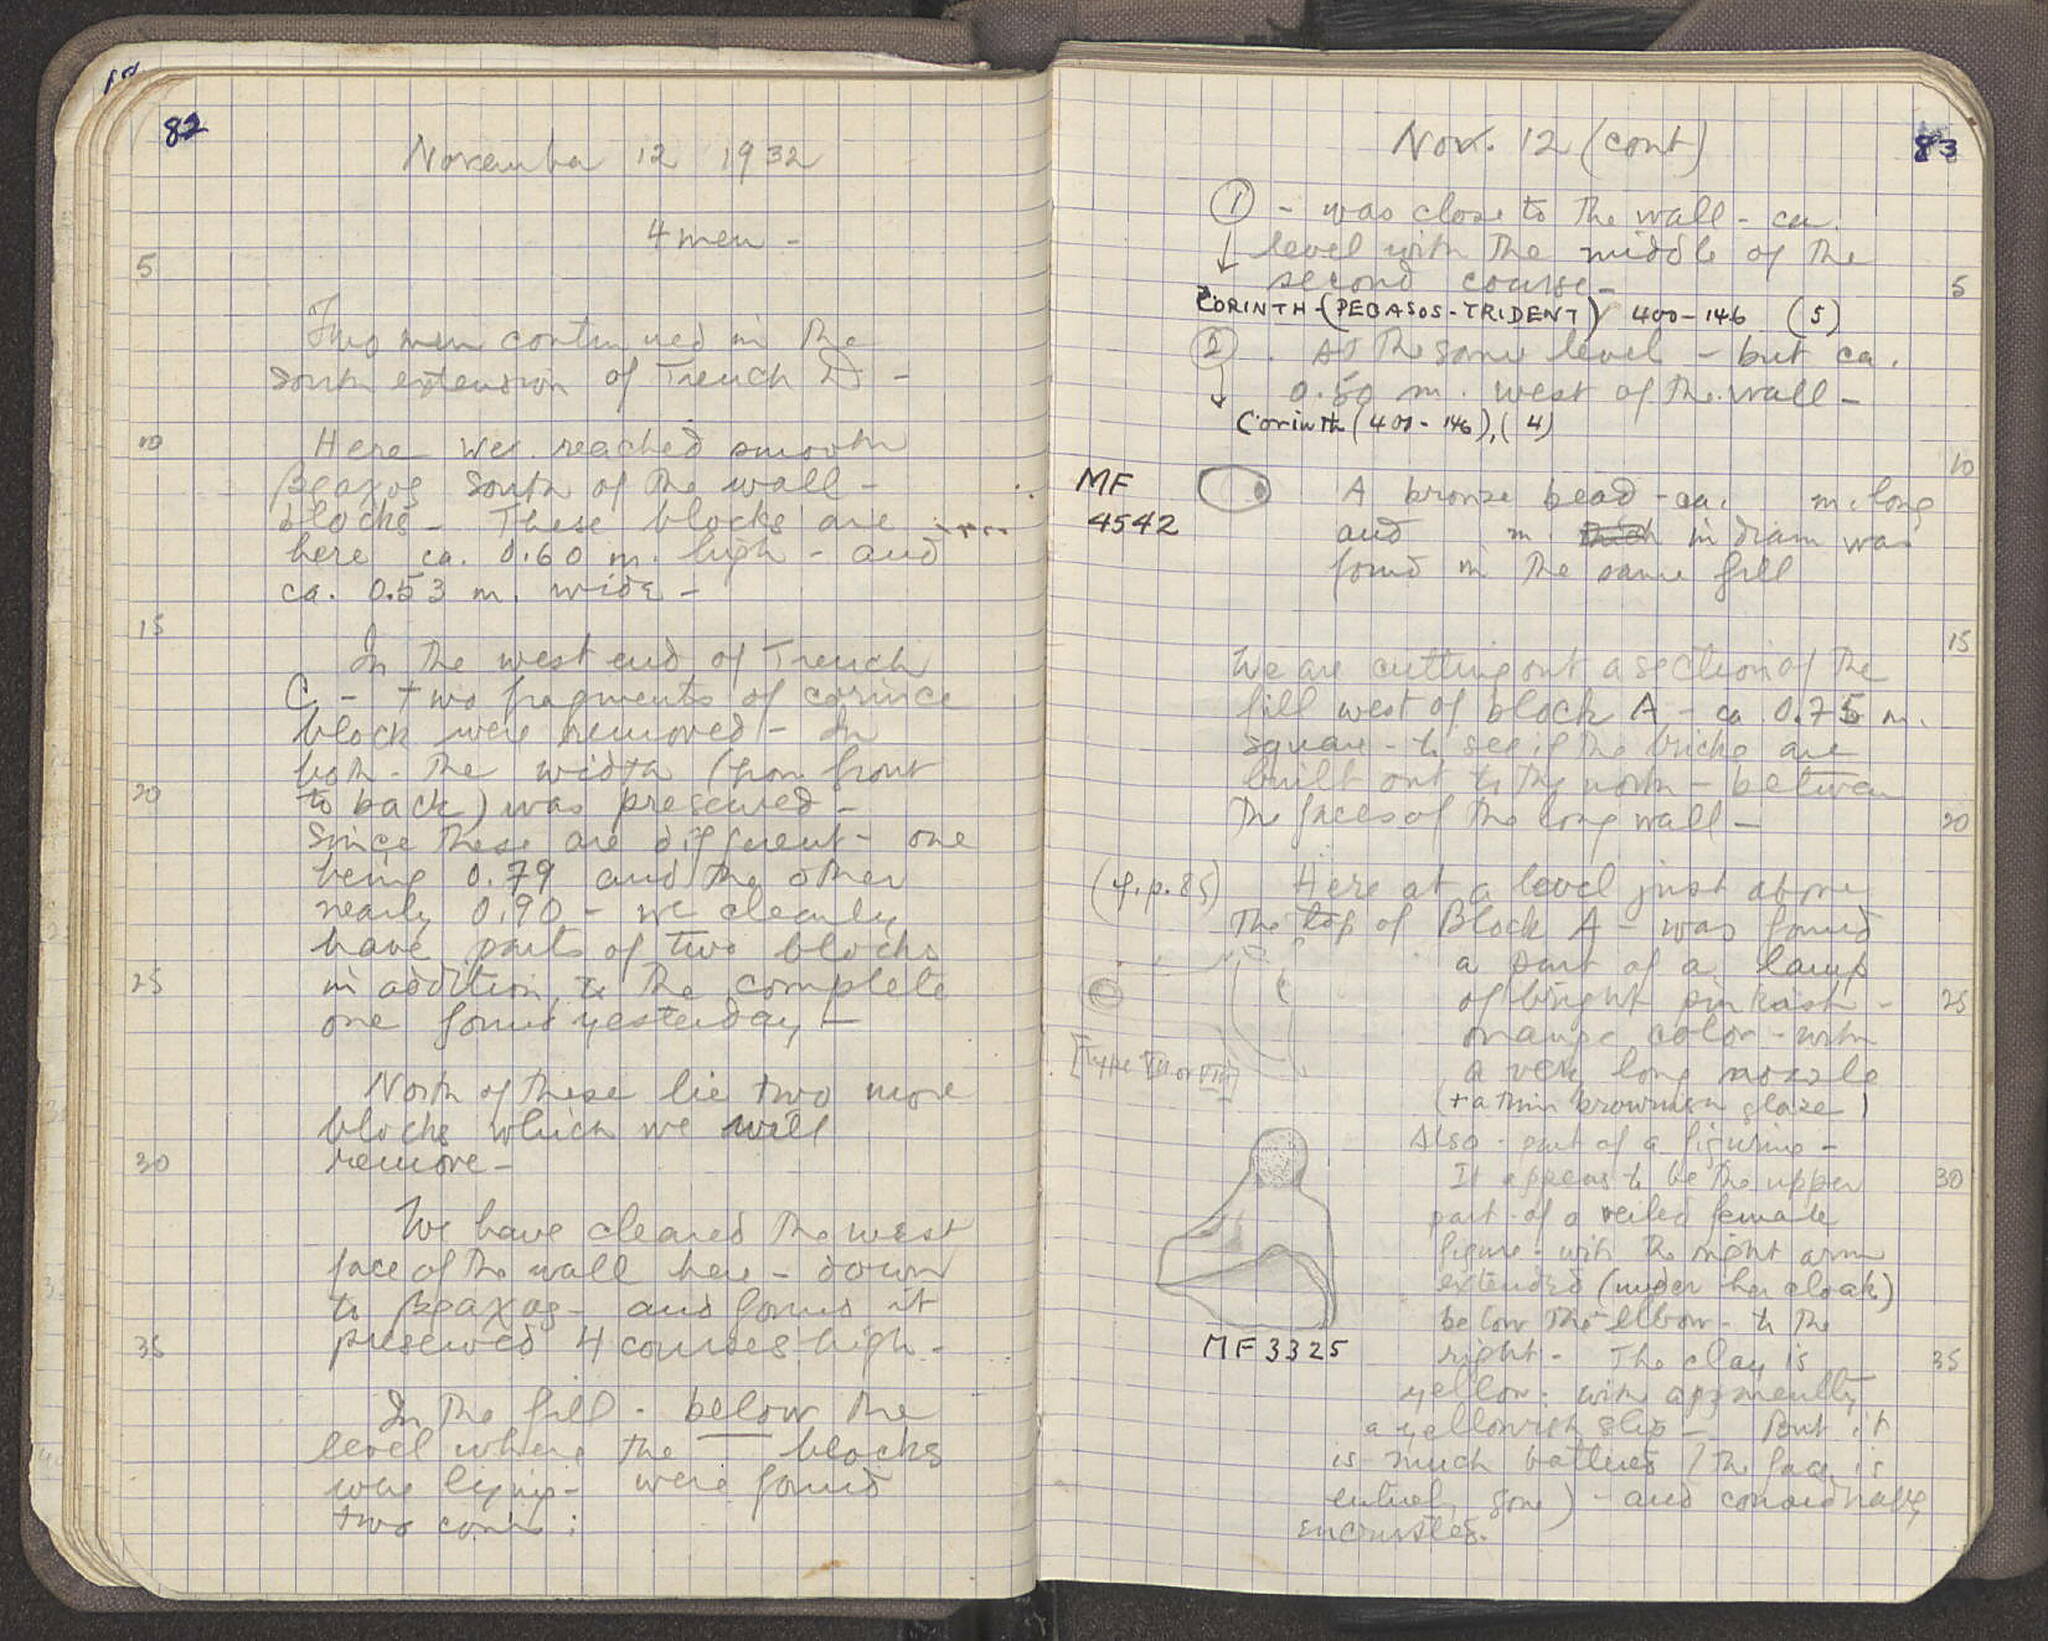 82
November 12 1932
4 men -
5
Two men continued in the
south extension of Trench D -
10
Here we reached smooth
βραχος south of the wall -
blocks - These blocks are
here ca. 0.60 m. high - and
ca. 0.53 m. wide -
15
In the west end of Trench
C - two fragments of cornice
block were removed - In
both - the width (from front
20
to back) was preserved -
Since these are different - one
being 0.79 and the other
nearly 0.90 - we clearly
have parts of two blocks
25
in addition to the complete
one found yesterday -
North of these lie two more
blocks which we will
30
remove -
We have cleared the west
face of the wall here - down
to βραχος - and found it
35
preserved 4 courses high -
In the fill - below the
level where the blocks
were lying - were found
two coins :
83
Nov. 12 (cont)
① - was close to the wall - ca.
level with the middle of the
5
second course -
CORINTH - (PEGASOS - TRIDENT) 400 - 146 (5)
② . At the same level - but ca.
0.50 m. west of the wall -
Corinth (400 - 146), (4)
10
MF
4542
A bronze bead - ca. m. long
and m. thick in diam was
found in the same fill
15
We are cutting out a section of the
fill west of block A - ca 0.75 m.
square - to see if the bricks are
built out to the north - between
20
the faces of the long wall -
(cf. p. 85) Here at a level just above
the top of Block A - was found
a part of a lamp
25
of bright pinkish -
orange color - with
a very long nozzle
[Type VII or VIII]
(+ a thin brownish glaze)
Also - part of a figurine -
30
It appears to be the upper
part - of a veiled female
figure - with the right arm
extended (under her cloak)
below the elbow - to the
35
right - The clay is
MF 3325
yellow: with apparently
a yellowish slip - but it
is much battered (the face is
entirely gone) - and considerably
encrusted.